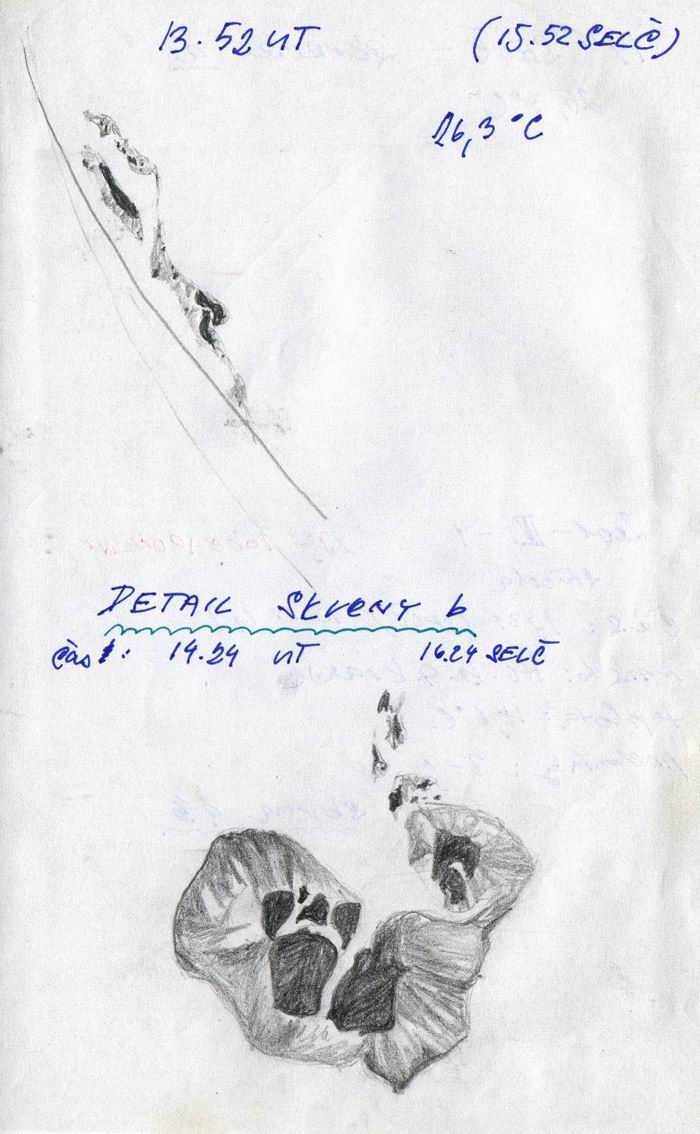 13.52 UT (15.52 SELČ)
26,3 °C
DETAIL SKVRNY b
čas: 14.24 UT 16.24 SELČ